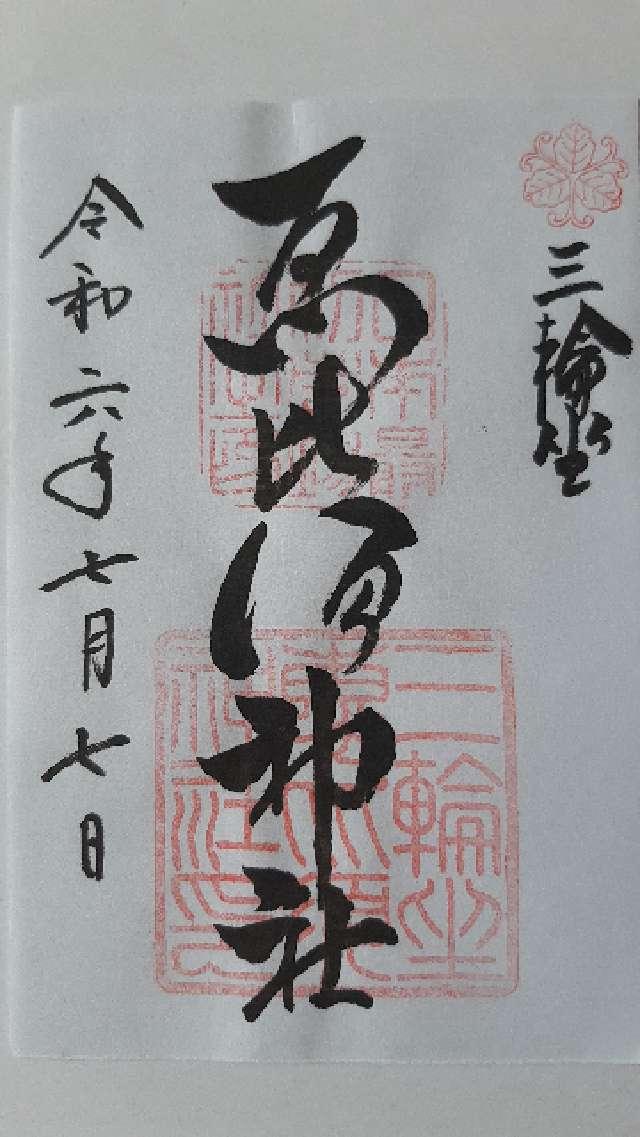 三輪坐
恵比須神社
令和六年七月七日
三輪坐
恵比須
神社之